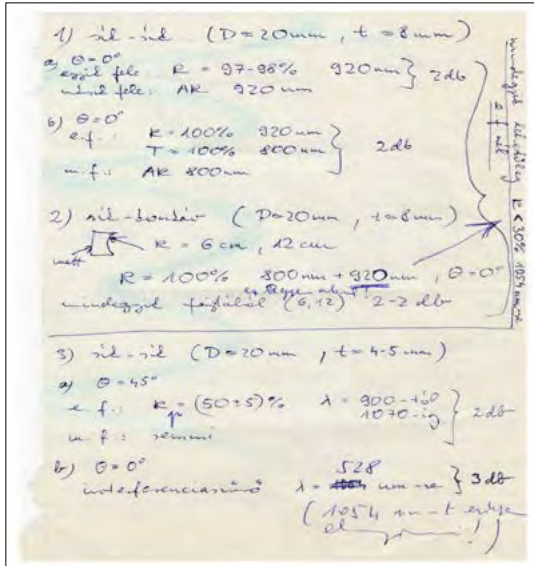 1) sík-sík (D=20mm, t=8mm)
a) Θ=0°
egyik fele: R = 97-98% 920nm } 2db
másik fele: AR 920nm
b) Θ=0°
e.f.: R=100% 920nm
T=100% 800nm } 2db
m.f.: AR 800nm
2) sík-homorú (D=20mm, t=8mm)
matt R = 6cm, 12cm
R = 100% 800nm + 920nm, Θ=0°
mindegyik fajtából (6,12) 2-2 db
mindegyik lehetőleg R<30% 1054nm-re
3) sík-sík (D=20mm, t=4-5mm)
a) Θ=45°
e.f.: Rp = (50±5)% λ = 900-tól
1070-ig } 2db
m.f.: semmi
b) Θ=0°
528
interferenciaszűrő λ = nm-re } 3db
(1054 nm-t
!)